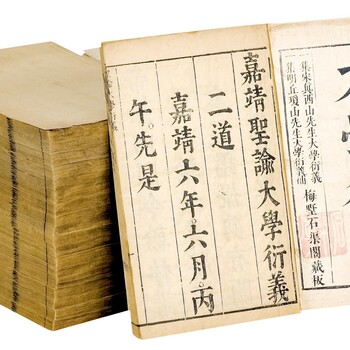 嘉靖聖諭大學衍義
二道
嘉靖六年六月丙
午先是
集宋真西山先生大學衍義
集明丘瓊山先生大學衍義補
梅墅石渠閣藏板